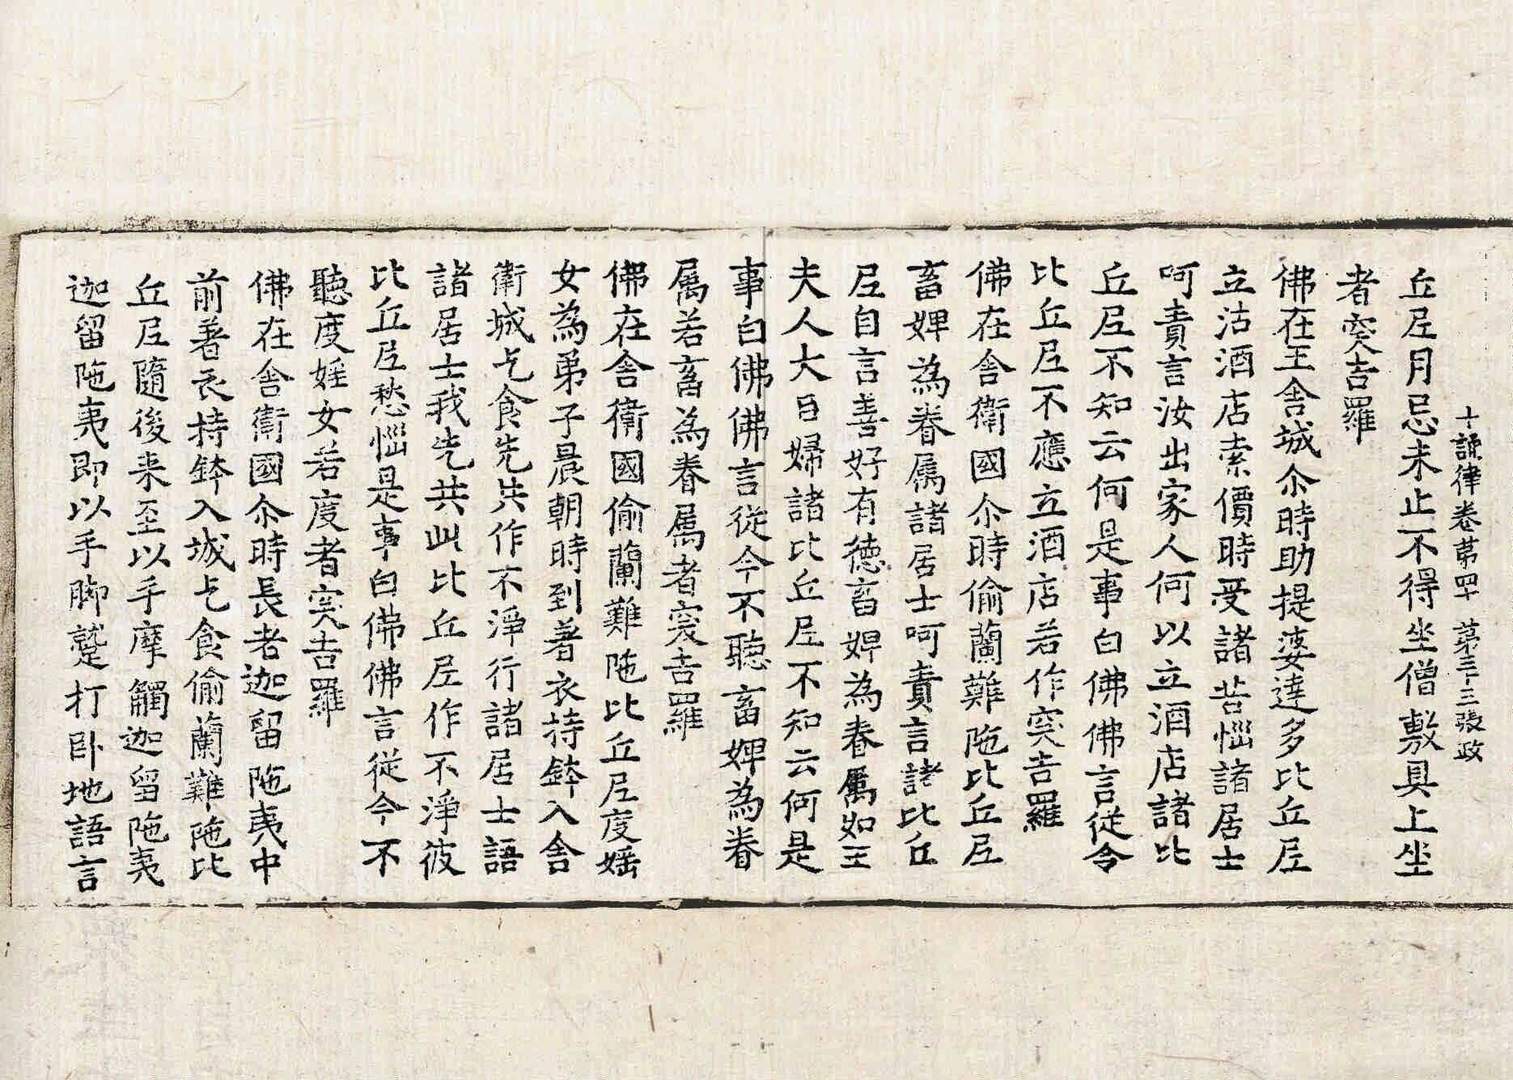 十誦律卷第四十　第三十三張政
丘尼月忌未止不得坐僧敷具上坐
者突吉羅
佛在王舍城尒時助提婆達多比丘尼
立沽酒店索價時受諸苦惱諸居士
呵責言汝出家人何以立酒店諸比
丘尼不知云何是事白佛佛言從今
比丘尼不應立酒店若作突吉羅
佛在舍衛國尒時偷蘭難陁比丘尼
畜婢為眷属諸居士呵責言諸比丘
尼自言善好有德畜婢為眷屬如王
夫人大臣婦諸比丘尼不知云何是
事白佛佛言從今不聽畜婢為眷
属若畜為眷属者突吉羅
佛在舍衛國偷蘭難陁比丘尼度婬
女為弟子晨朝時到著衣持鉢入舍
衛城乞食先共作不淨行諸居士語
諸居士我先共此比丘尼作不淨彼
比丘尼愁惱是事白佛佛言從今不
聽度婬女若度者突吉羅
佛在舍衛國尒時長老迦留陁夷中
前著衣持鉢入城乞食偷蘭難陁比
丘尼隨後来至以手摩觸迦留陁夷
迦留陁夷即以手脚蹵打卧地語言